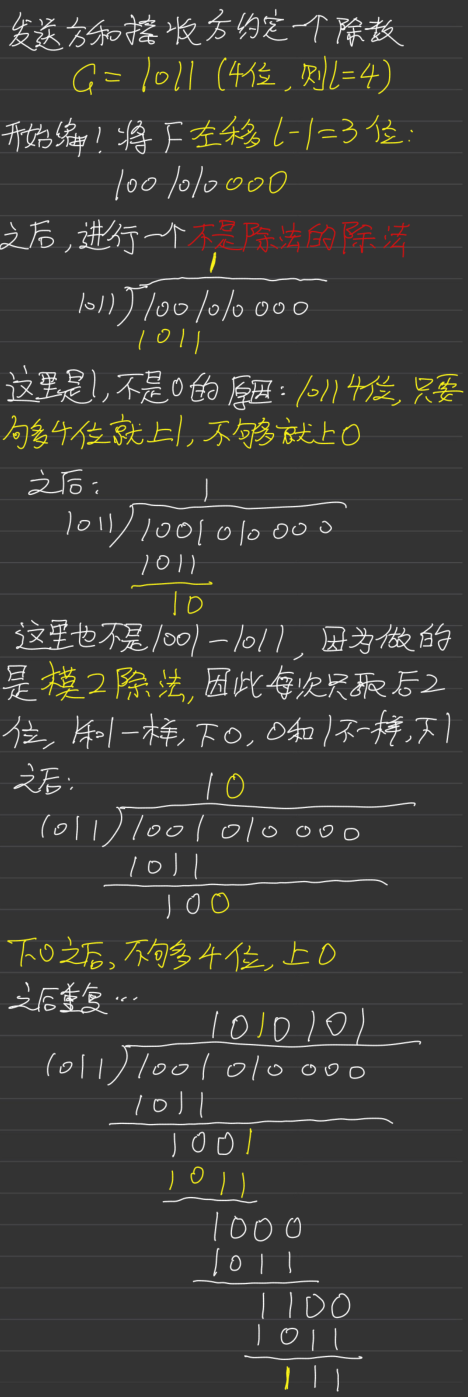 发送方和接收方约定一个除数
G = 1011 (4位, 则l=4)
开始编! 将F左移l-1=3位:
1001010000
之后, 进行一个不是除法的除法
1
1011 1001010000
1011
这里是1, 不是0的原因: 1011 4位, 只要
够4位就上1, 不够就上0
之后:
1
1011 1001010000
1011
10
这里也不是1001-1011, 因为做的
是模2除法, 因此每次只取后2
位, 1和1一样, 下0, 0和1不一样, 下1
之后:
10
1011 1001010000
1011
100
下0之后, 不够4位, 上0
之后重复…
1010101
1011 1001010000
1011
1001
1011
1000
1011
1100
1011
111